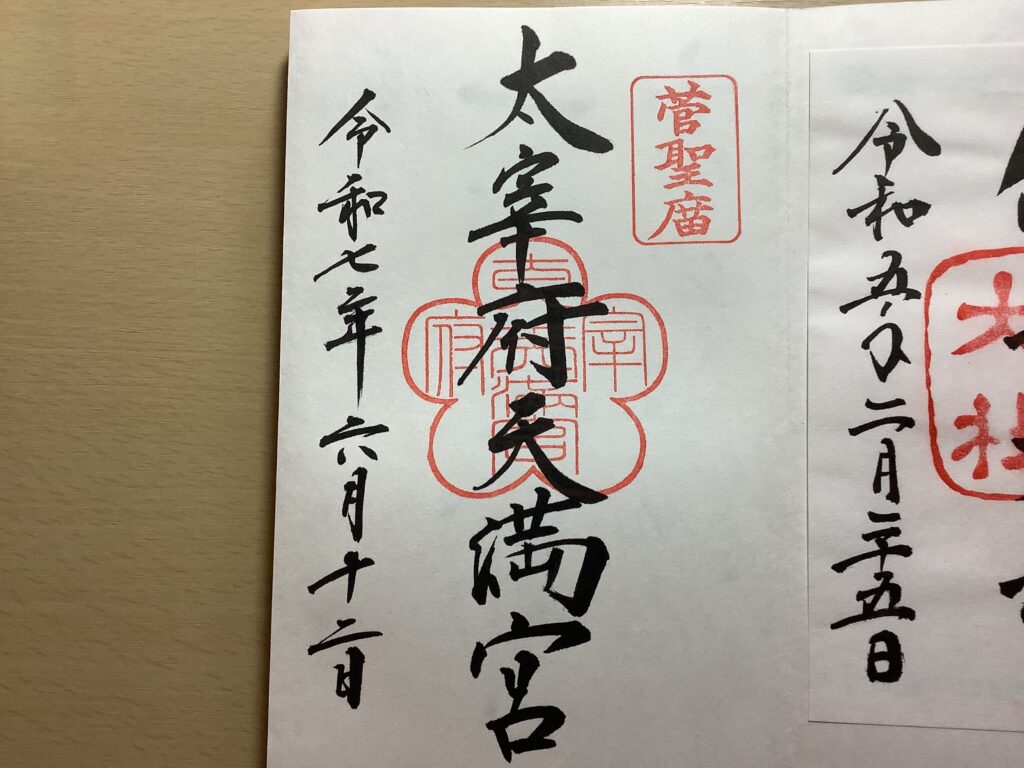 令和五年二月二十五日
菅聖庿
太宰府天満宮
宰
府
令和七年六月十二日